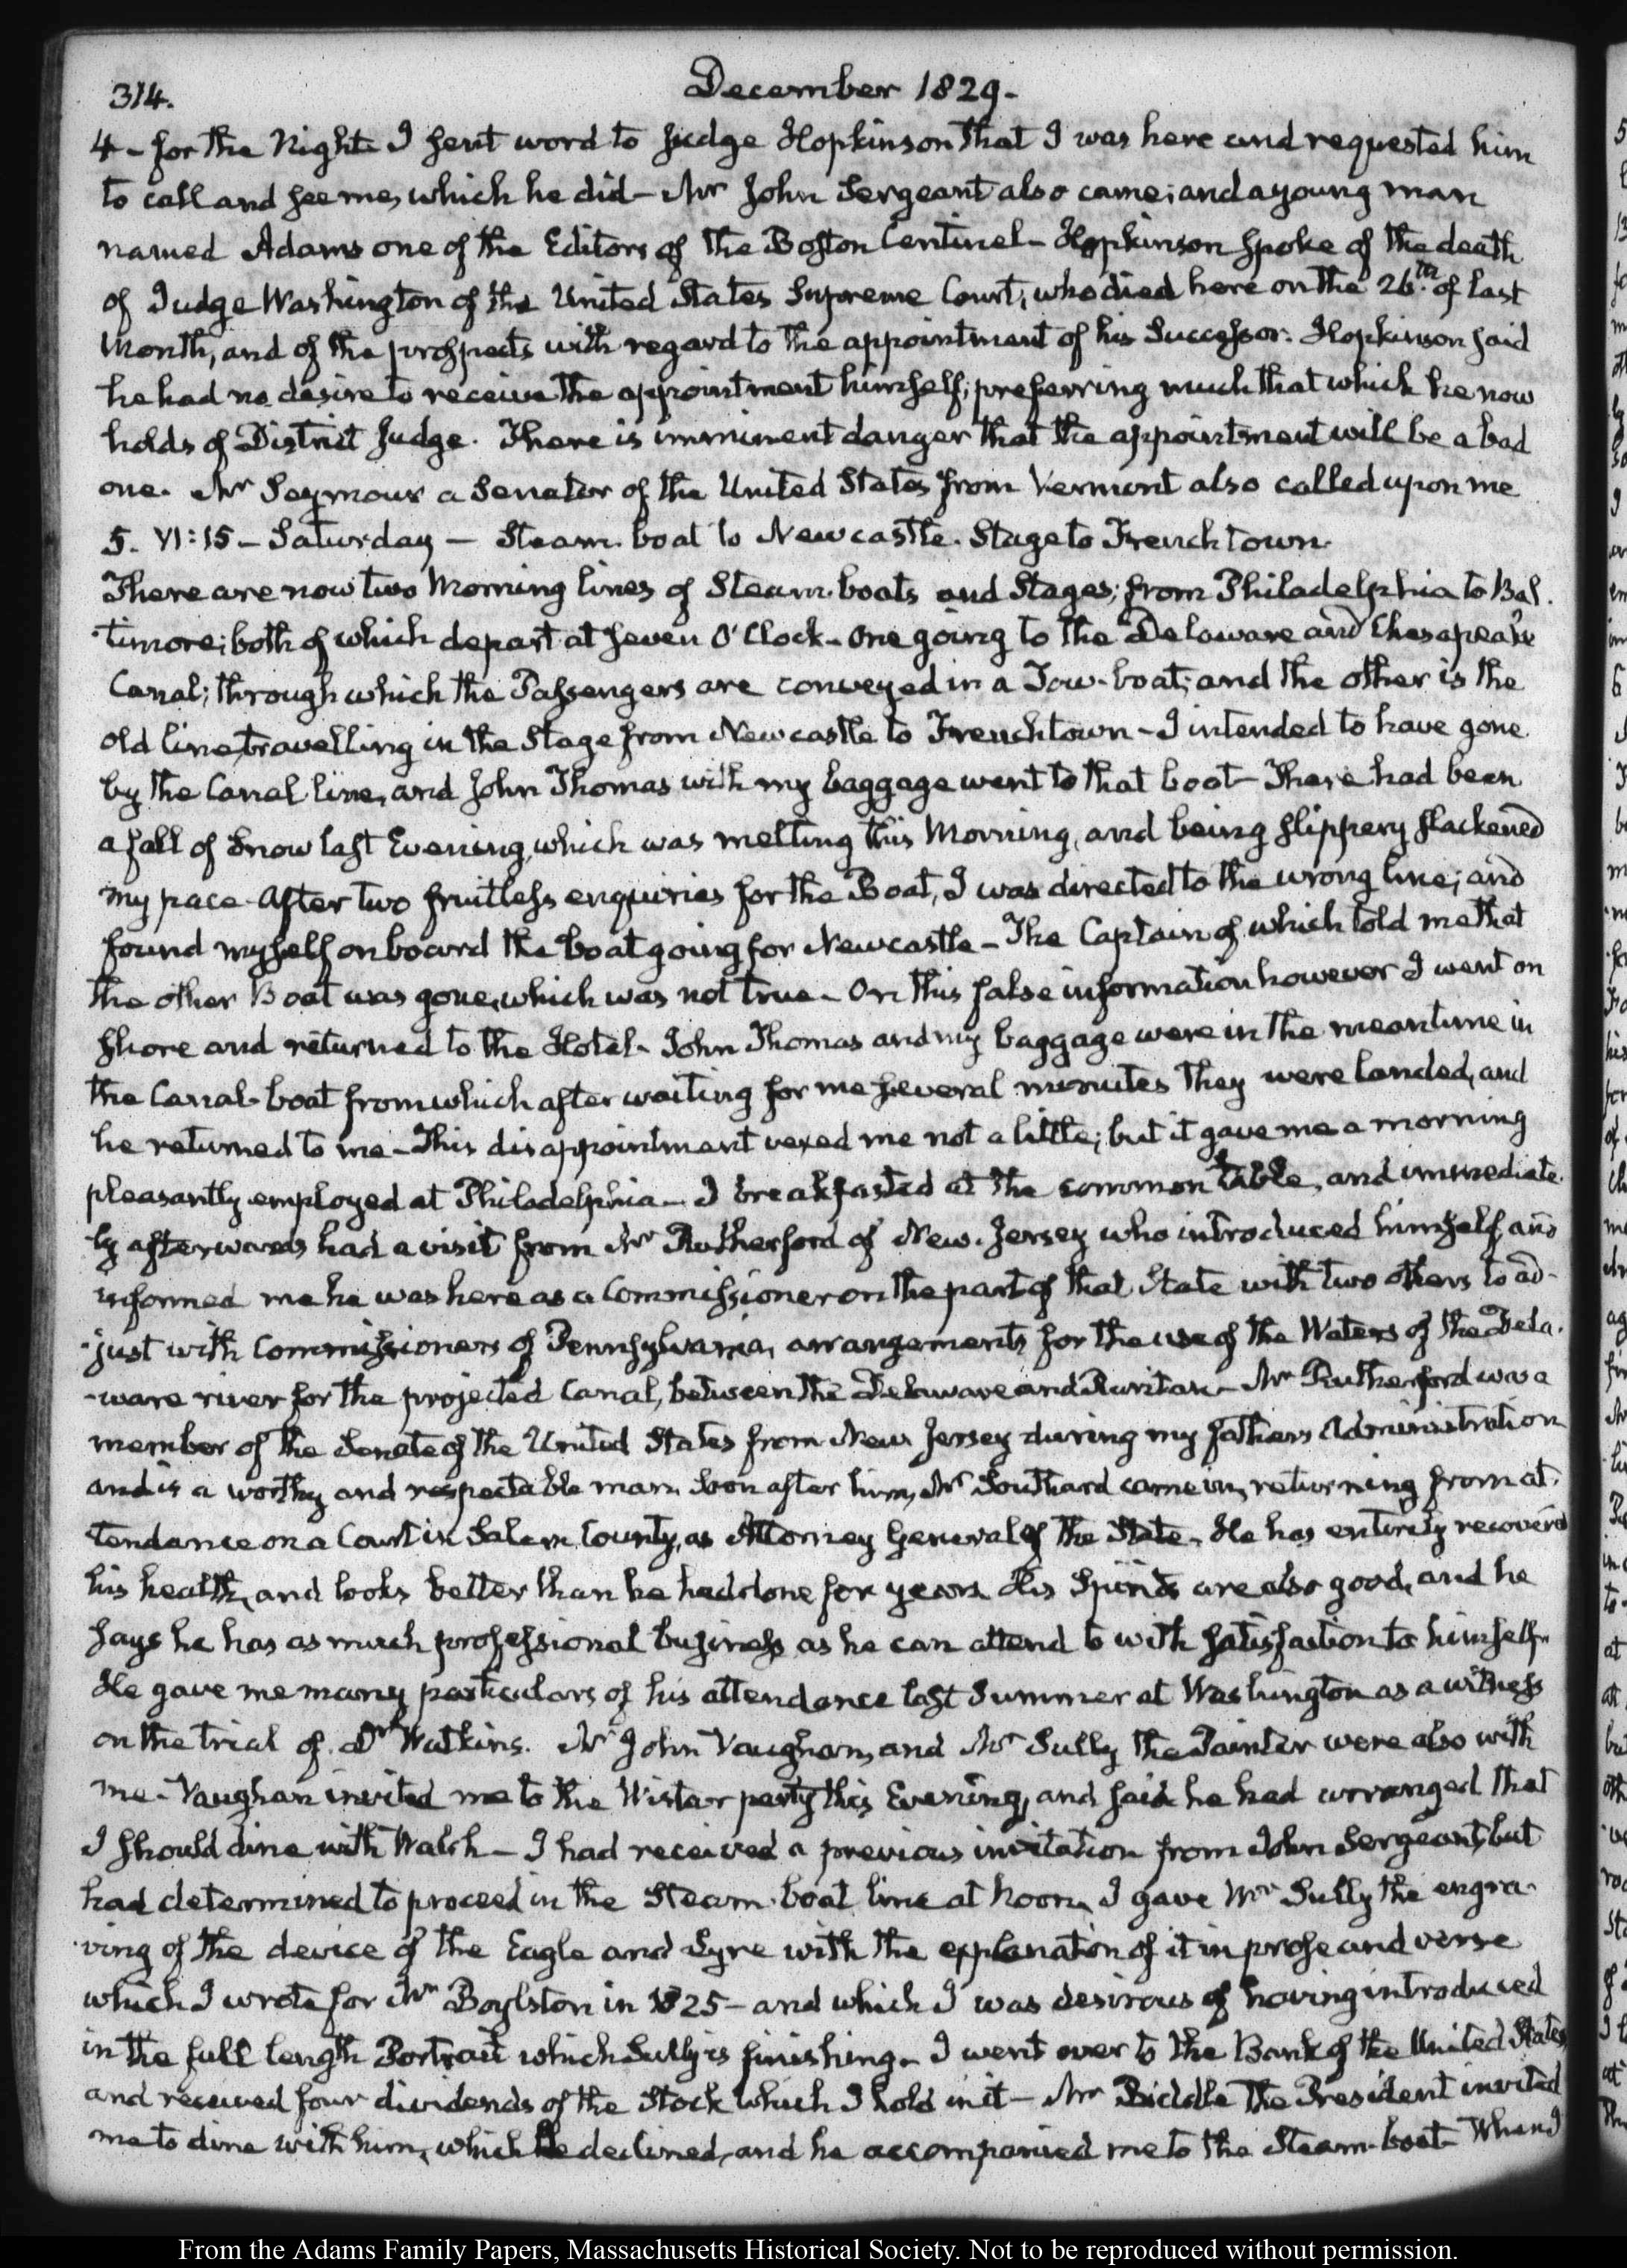 314.
December 1829.
4 - for the Night. I sent word to Judge Hopkinson that I was here and requested him
to call and see me, which he did - Mr John Sergeant also came; and a young man
named Adams one of the Editors of the Boston Centinel - Hopkinson spoke of the death
of Judge Washington of the United States Supreme Court, who died here on the 26th. of last
Month, and of the prospects with regard to the appointment of his Successor. Hopkinson said
he had no desire to receive the appointment himself; preferring much that which he now
holds of District Judge. There is imminent danger that the appointment will be a bad
one. Mr Seymour a Senator of the United States from Vermont also called upon me
5. VI:15 - Saturday - Steam-boat to Newcastle. Stage to Frenchtown.
There are now two Morning lines of Steam-boats and Stages; from Philadelphia to Bal-
timore; both of which depart at seven O'Clock - One going to the Delaware and Chesapeake
Canal; through which the Passengers are conveyed in a Tow-boat; and the other is the
old line, travelling in the Stage from Newcastle to Frenchtown - I intended to have gone
by the Canal line, and John Thomas with my baggage went to that boat - There had been
a fall of Snow last Evening, which was melting this Morning, and being slippery slackened
my pace - After two fruitless enquiries for the Boat, I was directed to the wrong line; and
found myself on board the boat going for Newcastle - The Captain of which told me that
the other Boat was gone, which was not true - On this false information however I went on
shore and returned to the Hotel - John Thomas and my baggage were in the meantime in
the Canal-boat from which after waiting for me several minutes they were landed, and
he returned to me - This disappointment vexed me not a little; but it gave me a morning
pleasantly employed at Philadelphia - I breakfasted at the common table, and immediate-
ly afterwards had a visit from Mr Rutherford of New-Jersey who introduced himself, and
informed me he was here as a Commissioner on the part of that State with two others to ad-
just with Commissioners of Pennsylvania, arrangements for the use of the Waters of the Dela-
ware river for the projected Canal, between the Delaware and Raritan - Mr Rutherford was a
member of the Senate of the United States from New Jersey during my father's Administration
and is a worthy and respectable man. Soon after him, Mr Southard came in, returning from at-
tendance on a Court in Salem County, as Attorney General of the State. He has entirely recovered
his health, and looks better than he had done for years. His Spirits are also good, and he
says he has as much professional business as he can attend to with satisfaction to himself.
He gave me many particulars of his attendance last Summer at Washington as a witness
on the trial of Dr Watkins. Mr John Vaughan, and Mr Sully the Painter were also with
me - Vaughan invited me to the Wistar party this Evening, and said he had arranged that
I should dine with Walsh - I had received a previous invitation from John Sergeant, but
had determined to proceed in the Steam-boat line at Noon. I gave Mr Sully the engra-
ving of the device of the Eagle and Lyre with the explanation of it in prose and verse
which I wrote for Mr Boylston in 1825 - and which I was desirous of having introduced
in the full length Portrait which Sully is finishing - I went over to the Bank of the United States
and received four dividends of the Stock which I hold in it - Mr Biddle the President invited
me to dine with him, which declined, and he accompanied me to the Steam-boat - When I
From the Adams Family Papers, Massachusetts Historical Society. Not to be reproduced without permission.